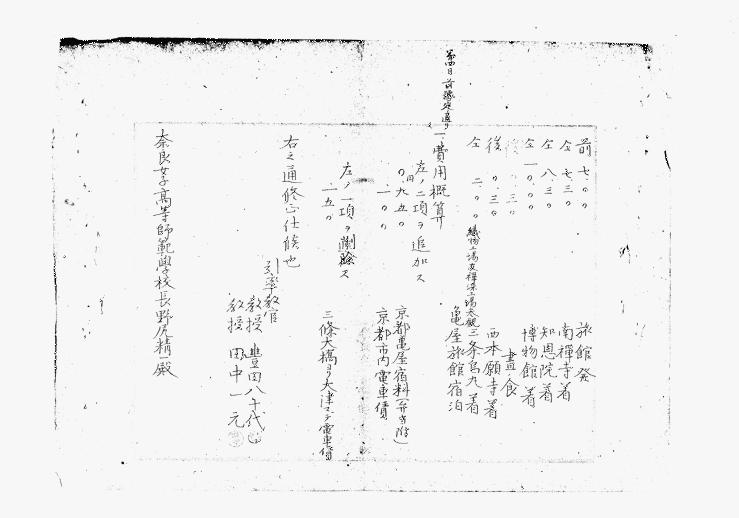 前 七、〇〇 旅館発
仝 七、三〇 南禅寺着
仝 八、三〇 知恩院着
仝 一〇、〇〇 博物館着
晝食
後 〇、三〇 西本願寺着
仝 二、〇〇 三条烏九着
織物工場友禅染工場参観
亀屋旅館宿泊
第四日 前議定通リ
一、費用概算
左ノ二項ヲ追加ス
〇、九五〇 京都亀屋宿料(弁当附)
、一〇〇 京都市内電車賃
左ノ一項ヲ削除ス
、一五〇 三條大橋ヨリ大津マデ電車賃
右之通修正仕候也
引率教官
教授 豊田八十代
教授 田中一元
奈良女子高等師範学校長野尻精一殿